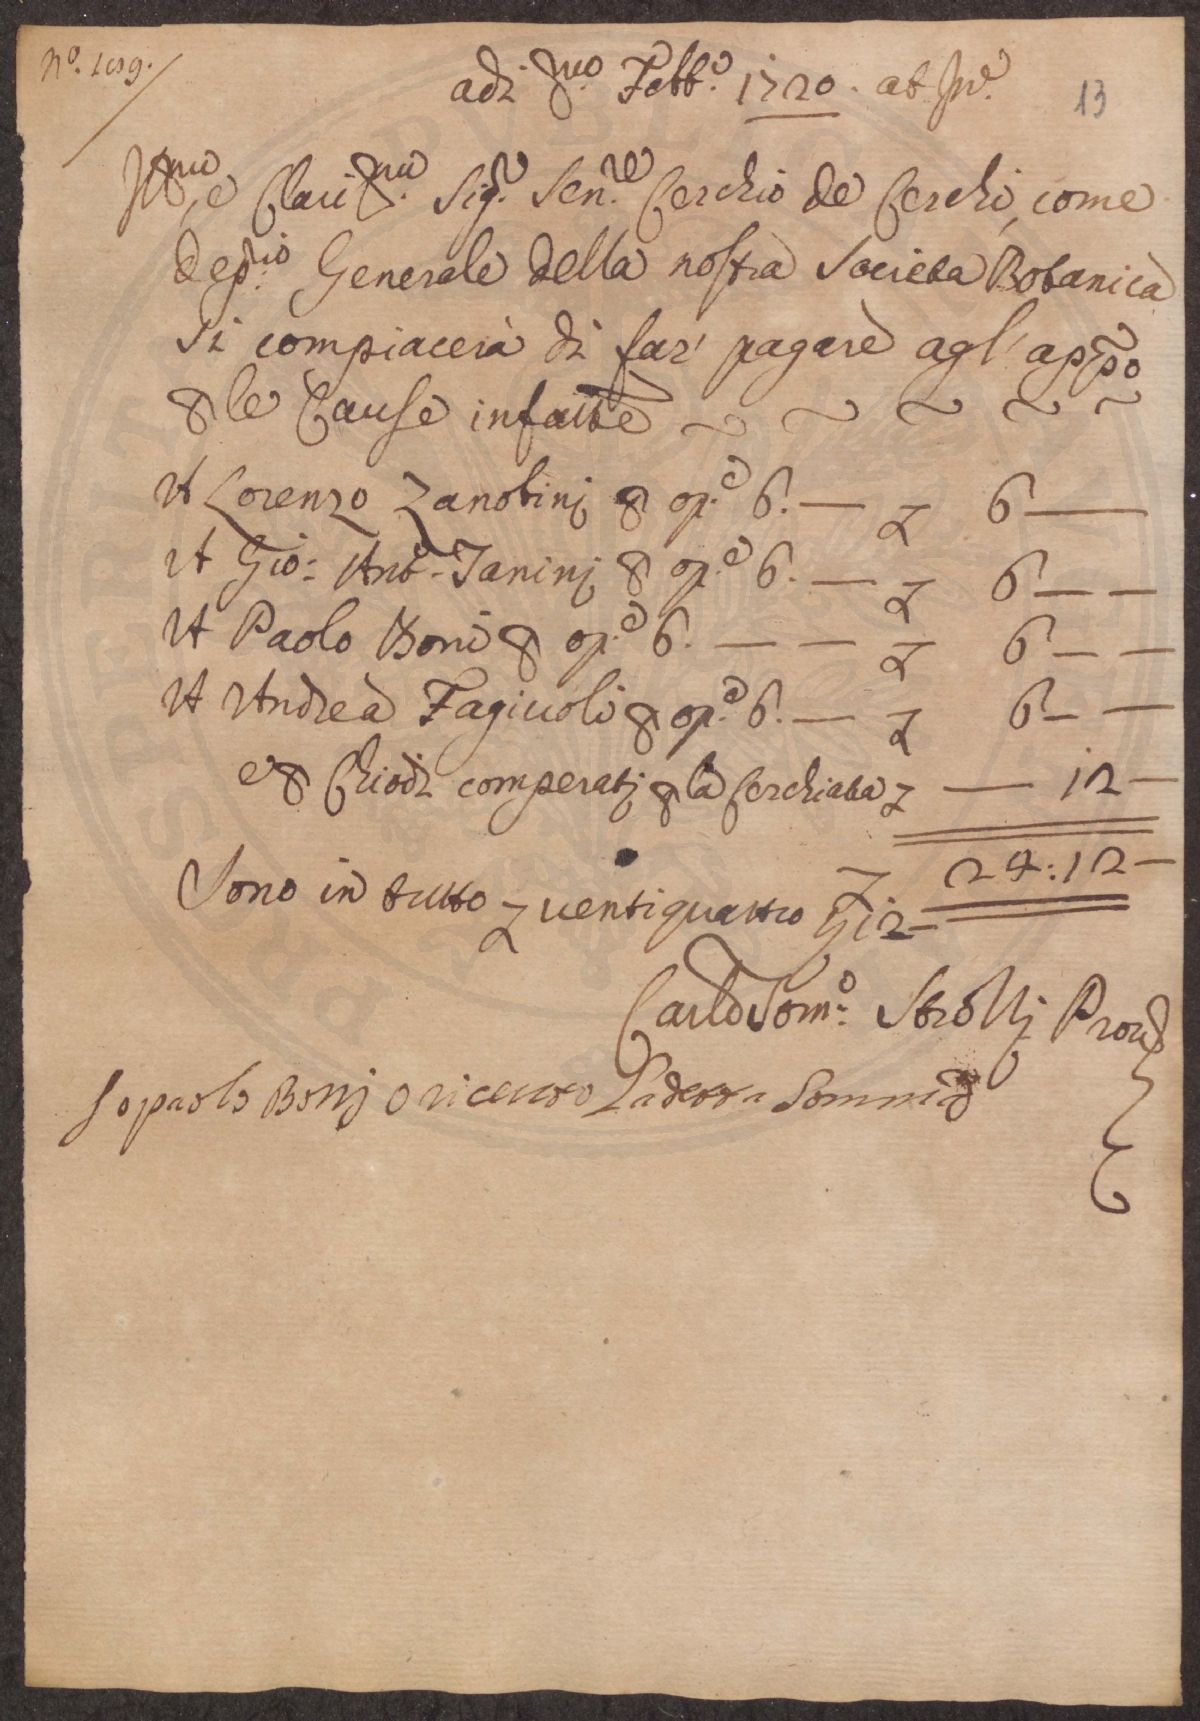 N.º 109.
adi p.mo Febb.º 1720. ab In.e
13
Ill.mo, e Clariss.mo Sig.r Sen.re Cerchio de Cerchi, come
dep.rio Generale della nostra Societa Botanica
si compiacerà di far' pagare agl' app.o
p le Cause infatte ~ ~ ~ ~ ~
A Lorenzo Zanobinj p op.e 6. — £ 6 —
A Gio: Ant.º Taninj p op.e 6. — £ 6 — —
A Paolo Boni p op.e 6. — — £ 6 — —
A Andrea Fagiuoli p op.e 6. — £ 6 — —
e p Chiodi comperatj p la Cerchiata £ — 12 —
£ 24:12 —
Sono in tutto £ ventiquattro 12 —
Carlo Tom.º Strozzj Prov.
Io paolo Bonj o riceuto la detta Somma